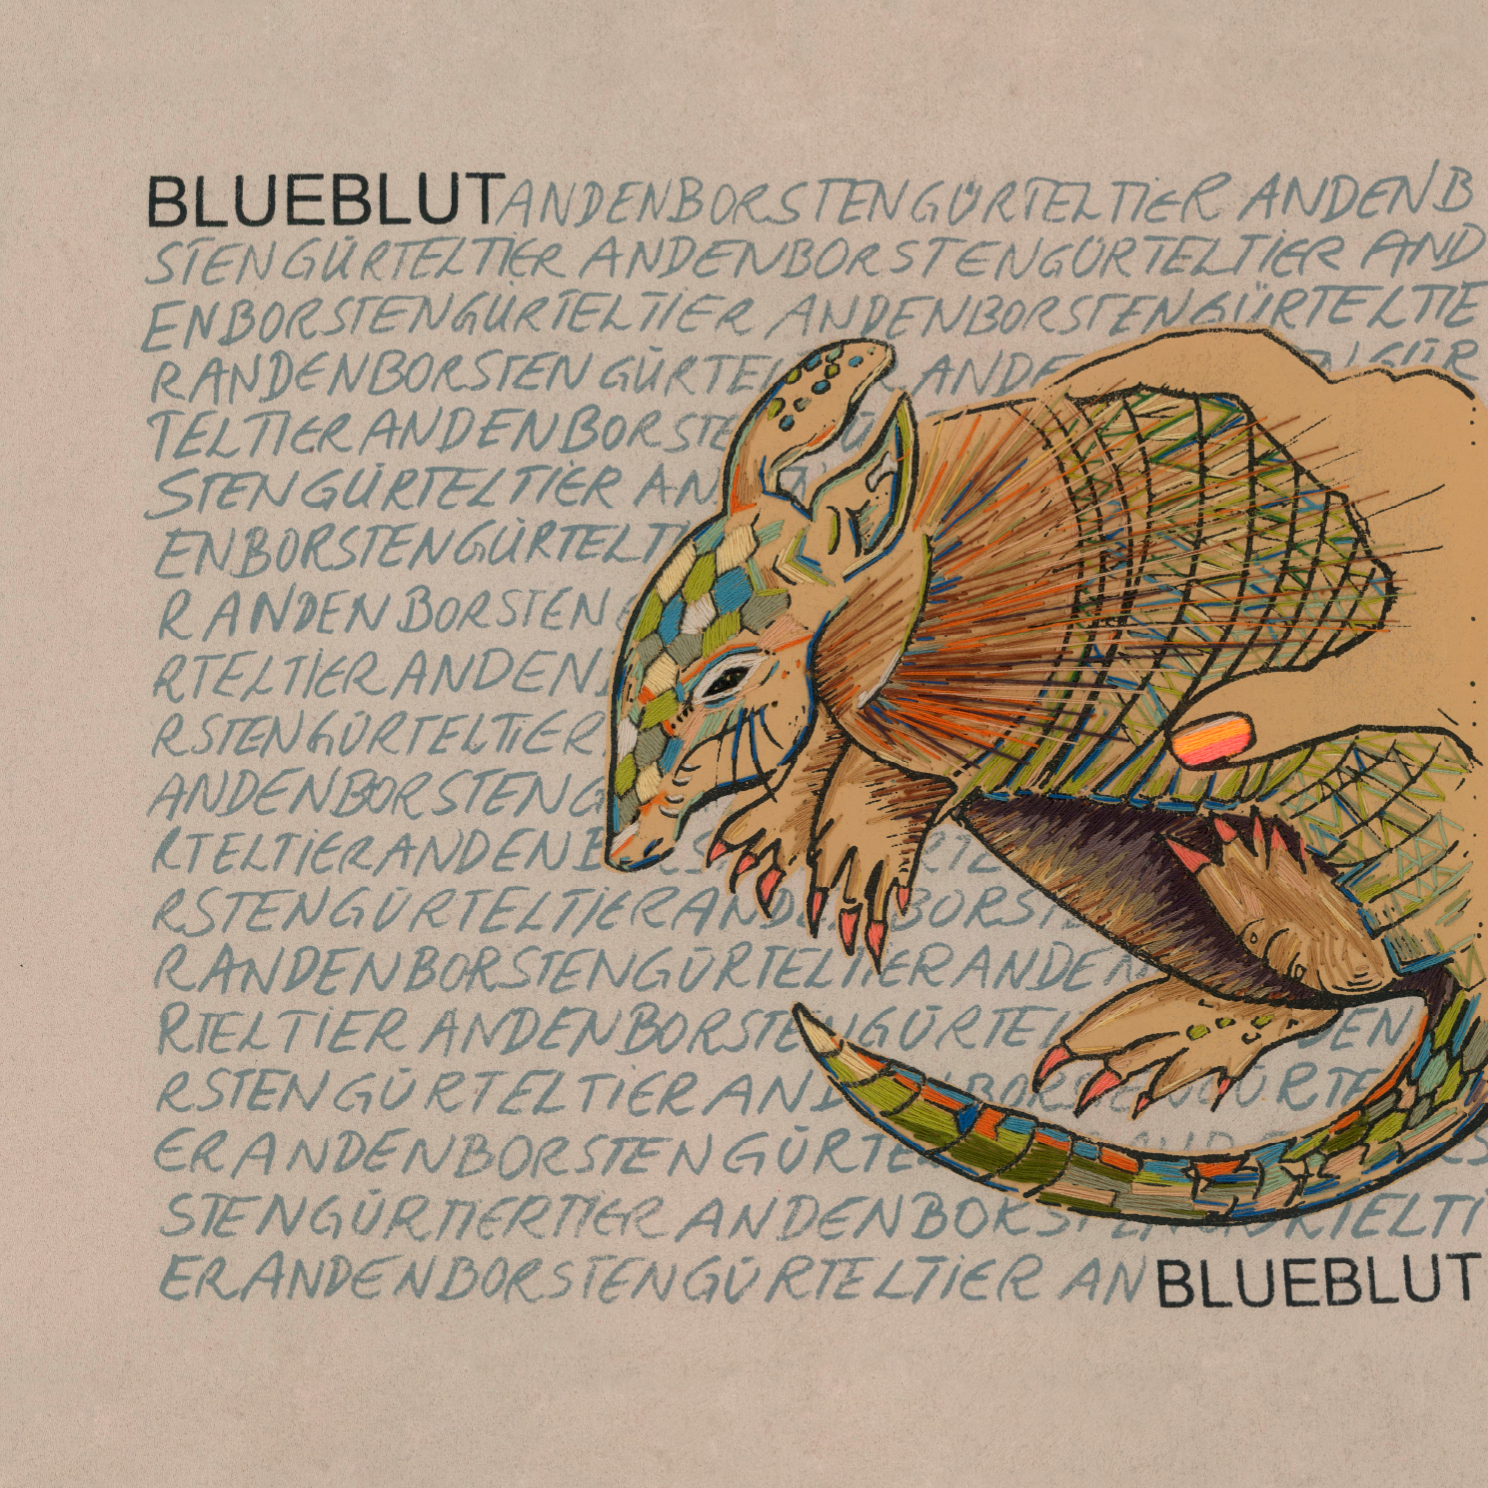 BLUEBLUT ANDENBORSTENGÜRTELTIER ANDENB
STENGÜRTELTIER ANDENBORSTENGÜRTELTIER AND
ENBORSTENGÜRTELTIER ANDENBORSTENGÜRTELTIE
RANDENBORSTENGÜRTEL R ANDE EN GÜR
TELTIER ANDENBORSTE Ü
STENGÜRTELTIER AN
ENBORSTENGÜRTELT
RANDENBORSTEN
RTELTIER ANDEN
RSTENGÜRTELTIER
ANDENBORSTENG
RTELTIERANDENB RTE
RSTENGÜRTELTIERANDE BORST
RANDENBORSTENGÜRTELTIERANDEN
RTELTIER ANDENBORSTENGÜRTEL DEN
RSTENGÜRTELTIER AND NBORSTENGÜRTE
ERANDENBORSTENGÜRTE AND RS
STENGÜRTIERTIER ANDENBORSTENGÜRTELTI
ERANDENBORSTENGÜRTELTIER AN BLUEBLUT